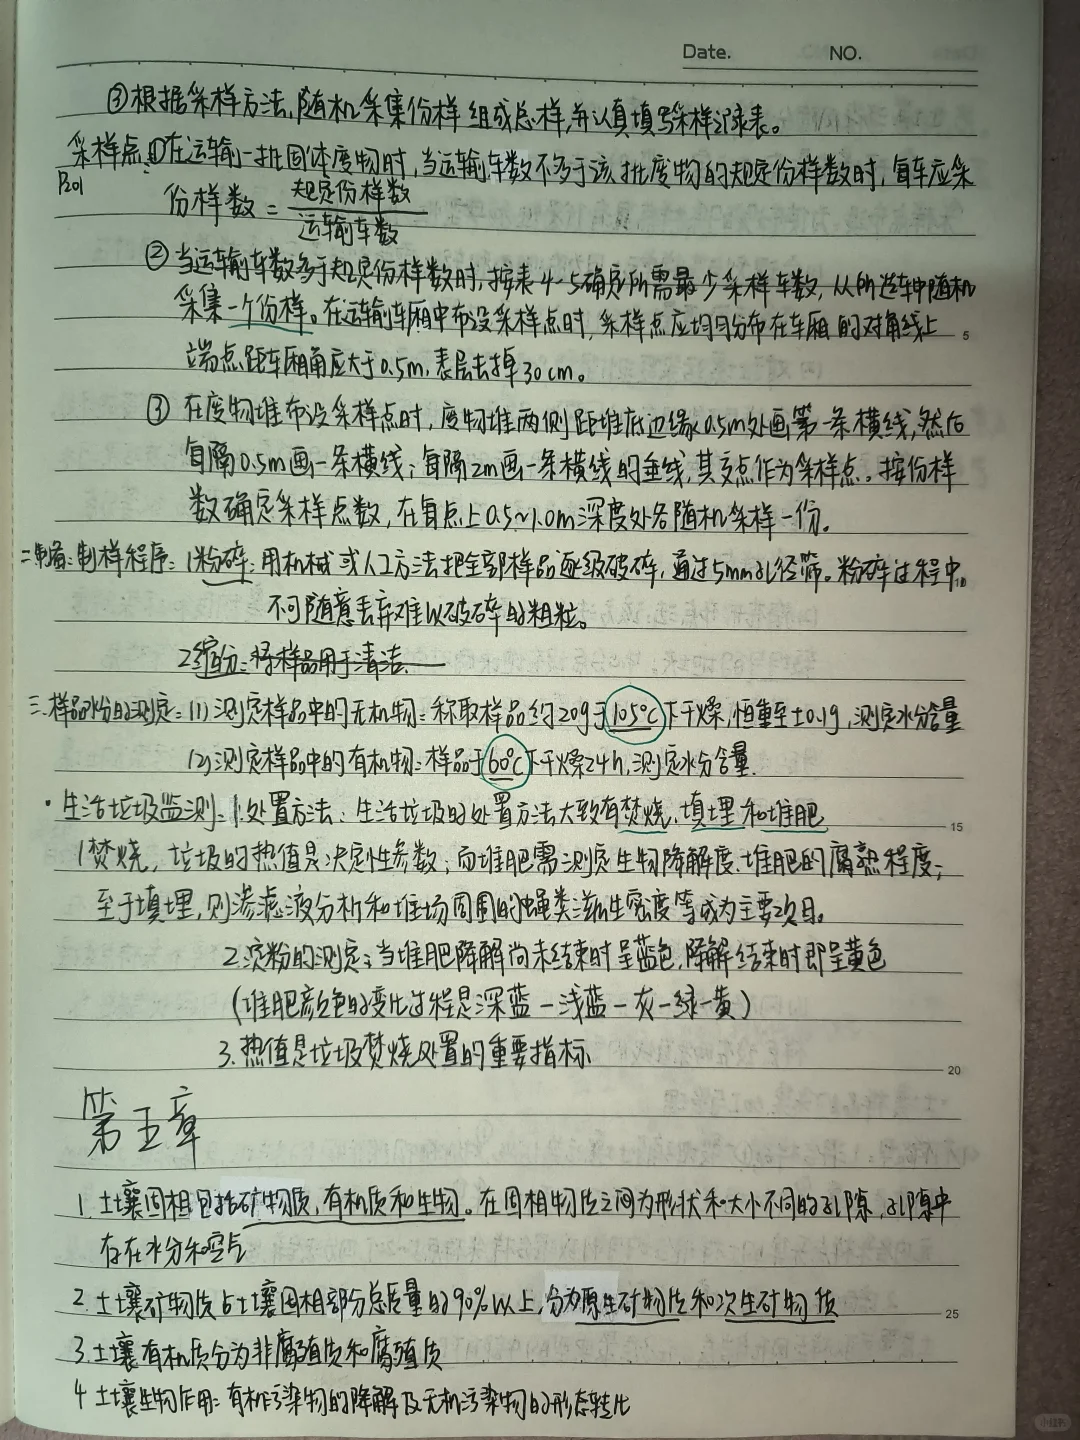 Date. NO.
③根据采样方法,随机采集份样组成总样,并认真填写采样记录表。
采样点:①在运输一批固体废物时,当运输车数不多于该批废物的规定份样数时,每车应采
P201
份样数=规定份样数/运输车数
②当运输车数多于规定份样数时,按表4-5确定所需最少采样车数,从所选车中随机
采集一个份样。在运输车厢中布设采样点时,采样点应均匀分布在车厢的对角线上
5
端点距车厢角应大于0.5m,表层去掉30cm。
③在废物堆布设采样点时,废物堆两侧距堆底边缘0.5m处画第一条横线,然后
每隔0.5m画一条横线;每隔2m画一条横线的垂线,其交点作为采样点。按份样
数确定采样点数,在每点上0.5~1.0m深度处各随机采样一份。
二制备:制样程序:1粉碎:用机械或人工方法把全部样品逐级破碎,通过5mm孔径筛。粉碎过程中,
10
不可随意丢弃难以破碎的粗粒。
2缩分:将样品用于清洁、
三.样品水份的测定:(1)测定样品中的无机物:称取样品约20g于105℃下干燥,恒重至±0.1g,测定水分含量
(2)测定样品中的有机物:样品于60℃下干燥24h,测定水分含量.
·生活垃圾监测:1.处置方法:生活垃圾的处置方法大致有焚烧、填埋和堆肥
15
1焚烧,垃圾的热值是决定性参数;而堆肥需测定生物降解度、堆肥的腐熟程度;
至于填埋,则渗滤液分析和堆场周围的蝇类滋生密度等成为主要项目。
2.淀粉的测定:当堆肥降解尚未结束时呈蓝色,降解结束时即呈黄色
(堆肥颜色的变化过程是深蓝-浅蓝-灰-绿-黄)
3.热值是垃圾焚烧处置的重要指标
20
第五章
1.土壤固相包括矿物质,有机质和生物。在固相物质之间为形状和大小不同的孔隙,孔隙中
存在水分和空气
2.土壤矿物质占土壤固相部分总质量的90%以上,分为原生矿物质和次生矿物质
25
3.土壤有机质分为非腐殖质和腐殖质
4土壤生物作用:有机污染物的降解及无机污染物的形态转化
小红书